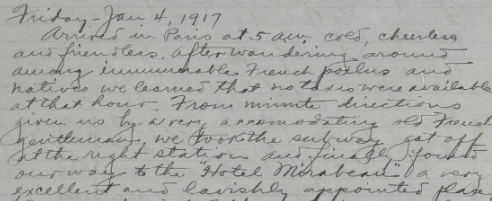 Friday - Jan 4, 1917
Arrived in Paris at 5 a.m. cold, cheerless
and friendless. After wandering around
among innumerable French poilus and
natives we learned that no taxis were available
at that hour. From minute directions
given us by a very accomodating old French
gentleman, we took the subway got off
at the right station and finally found
our way to the "Hotel Mirabeau" a very
excellent and lavishly appointed place